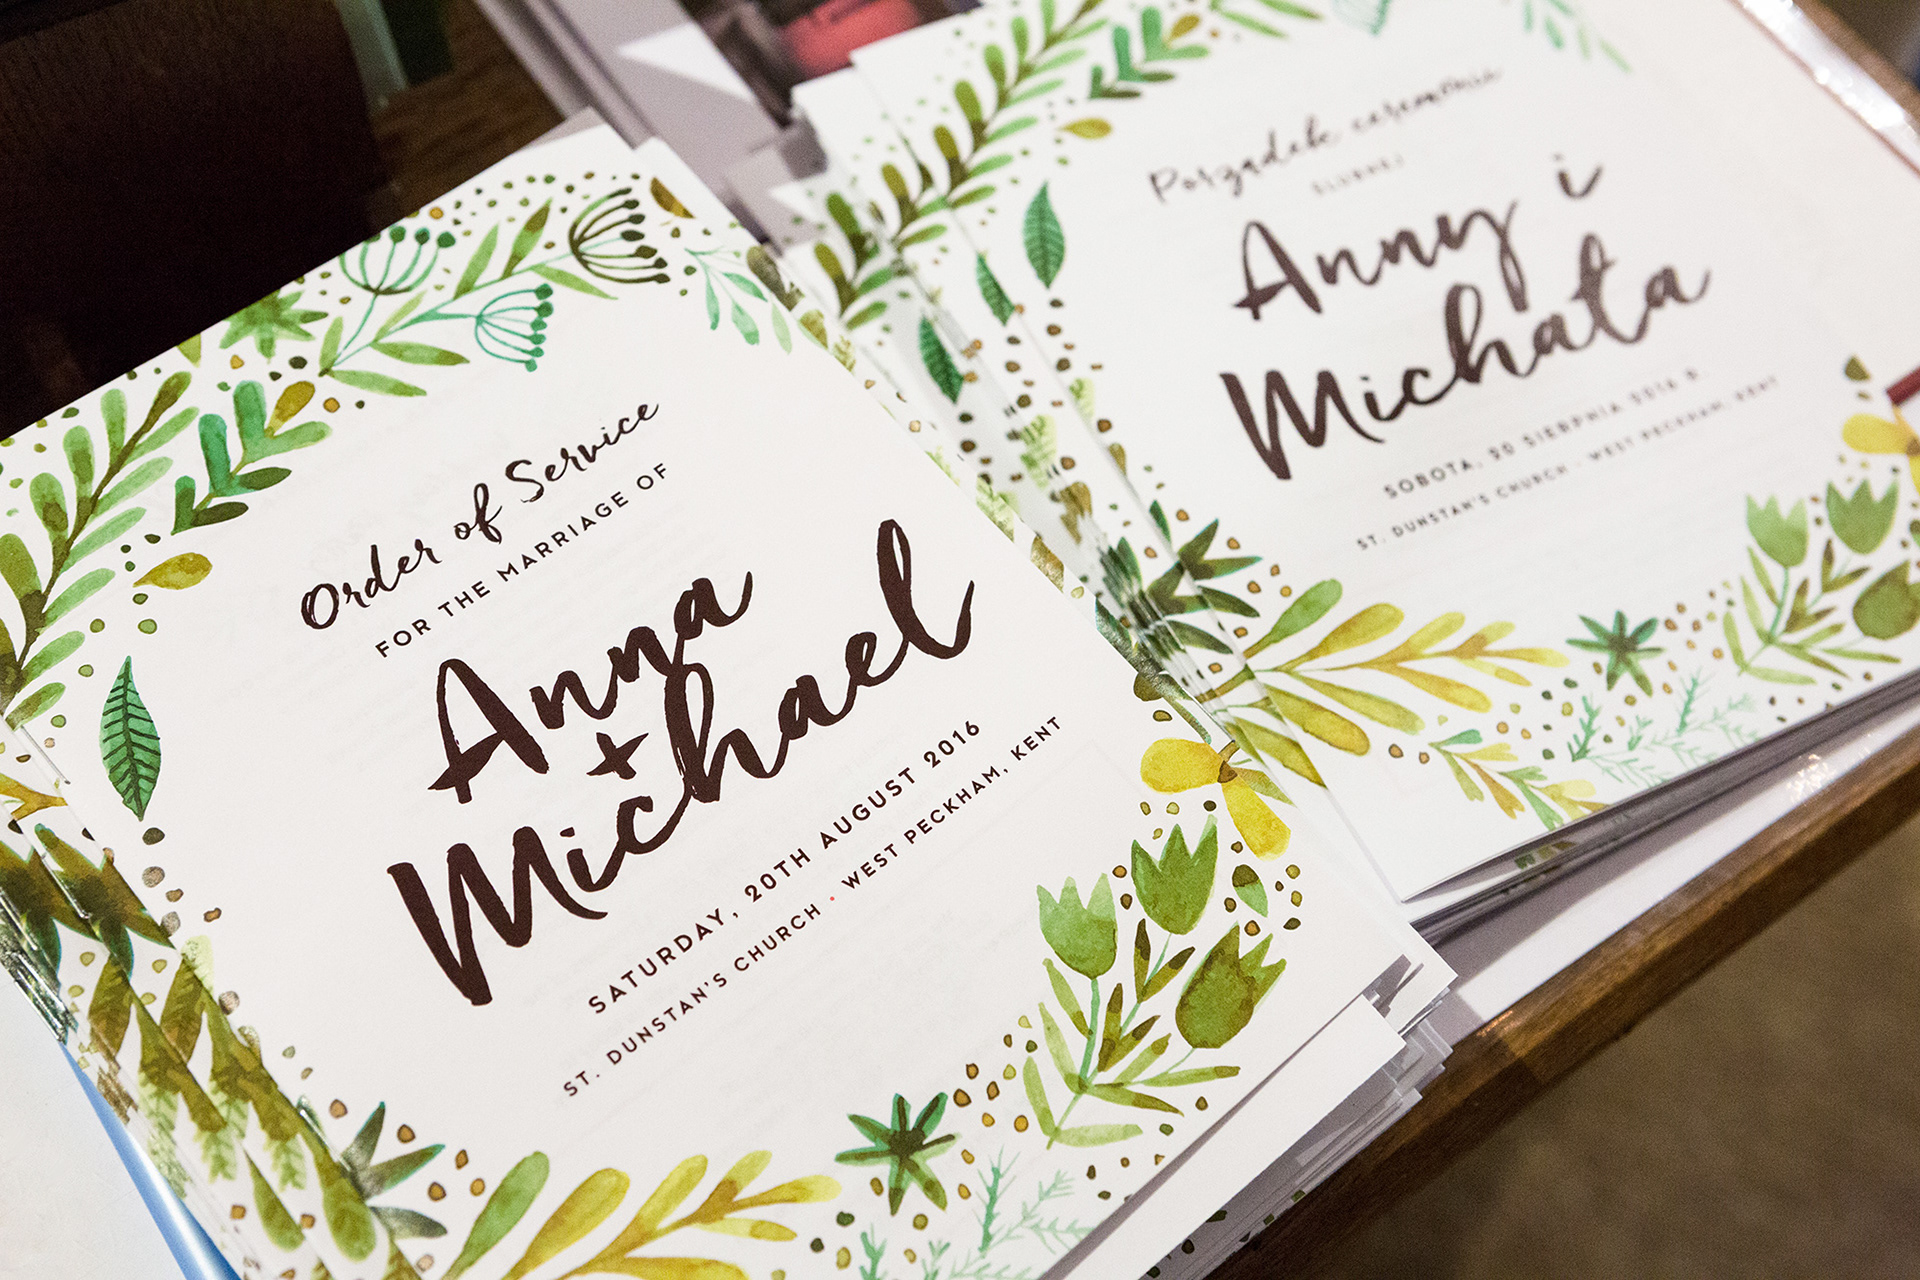 Order of Service
FOR THE MARRIAGE OF
Anna
+
Michael
SATURDAY, 20TH AUGUST 2016
ST. DUNSTAN'S CHURCH • WEST PECKHAM, KENT
Porządek ceremonii
ŚLUBNEJ
Anny i
Michała
SOBOTA, 20 SIERPNIA 2016 R.
ST. DUNSTAN'S CHURCH • WEST PECKHAM, KENT